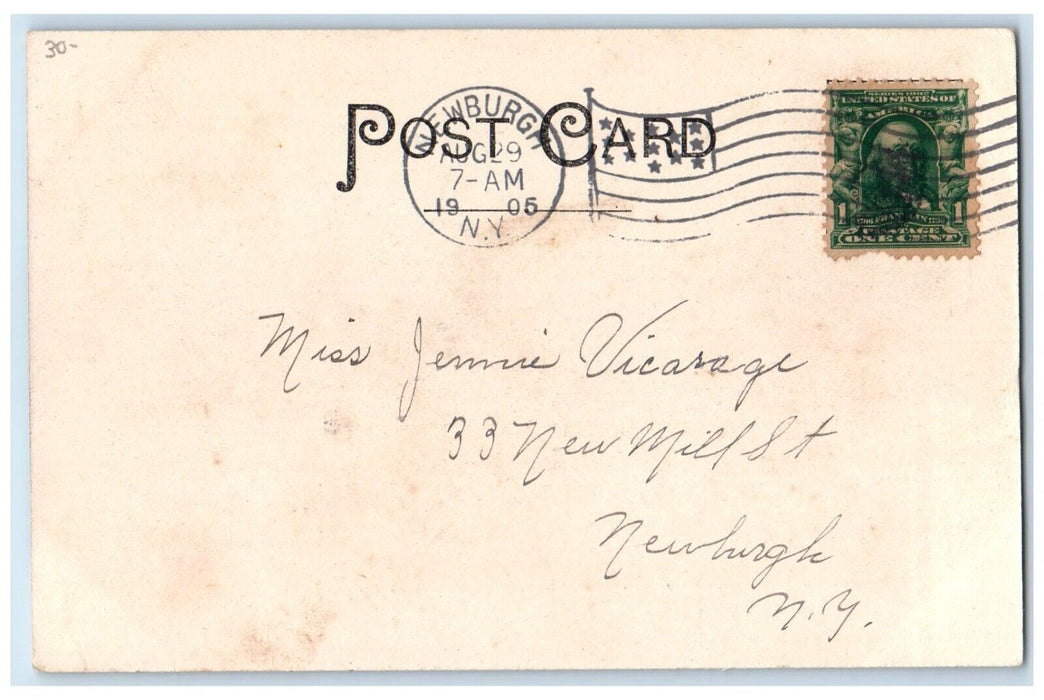 30-
POST CARD
NEWBURGH
AUG 29
7-AM
19 05
N.Y.
SERIES 1902
UNITED STATES OF
AMERICA
1 FRANKLIN 1
POSTAGE
ONE CENT
Miss Jennie Vicarage
33 New Mill St
Newburgh
N.Y.